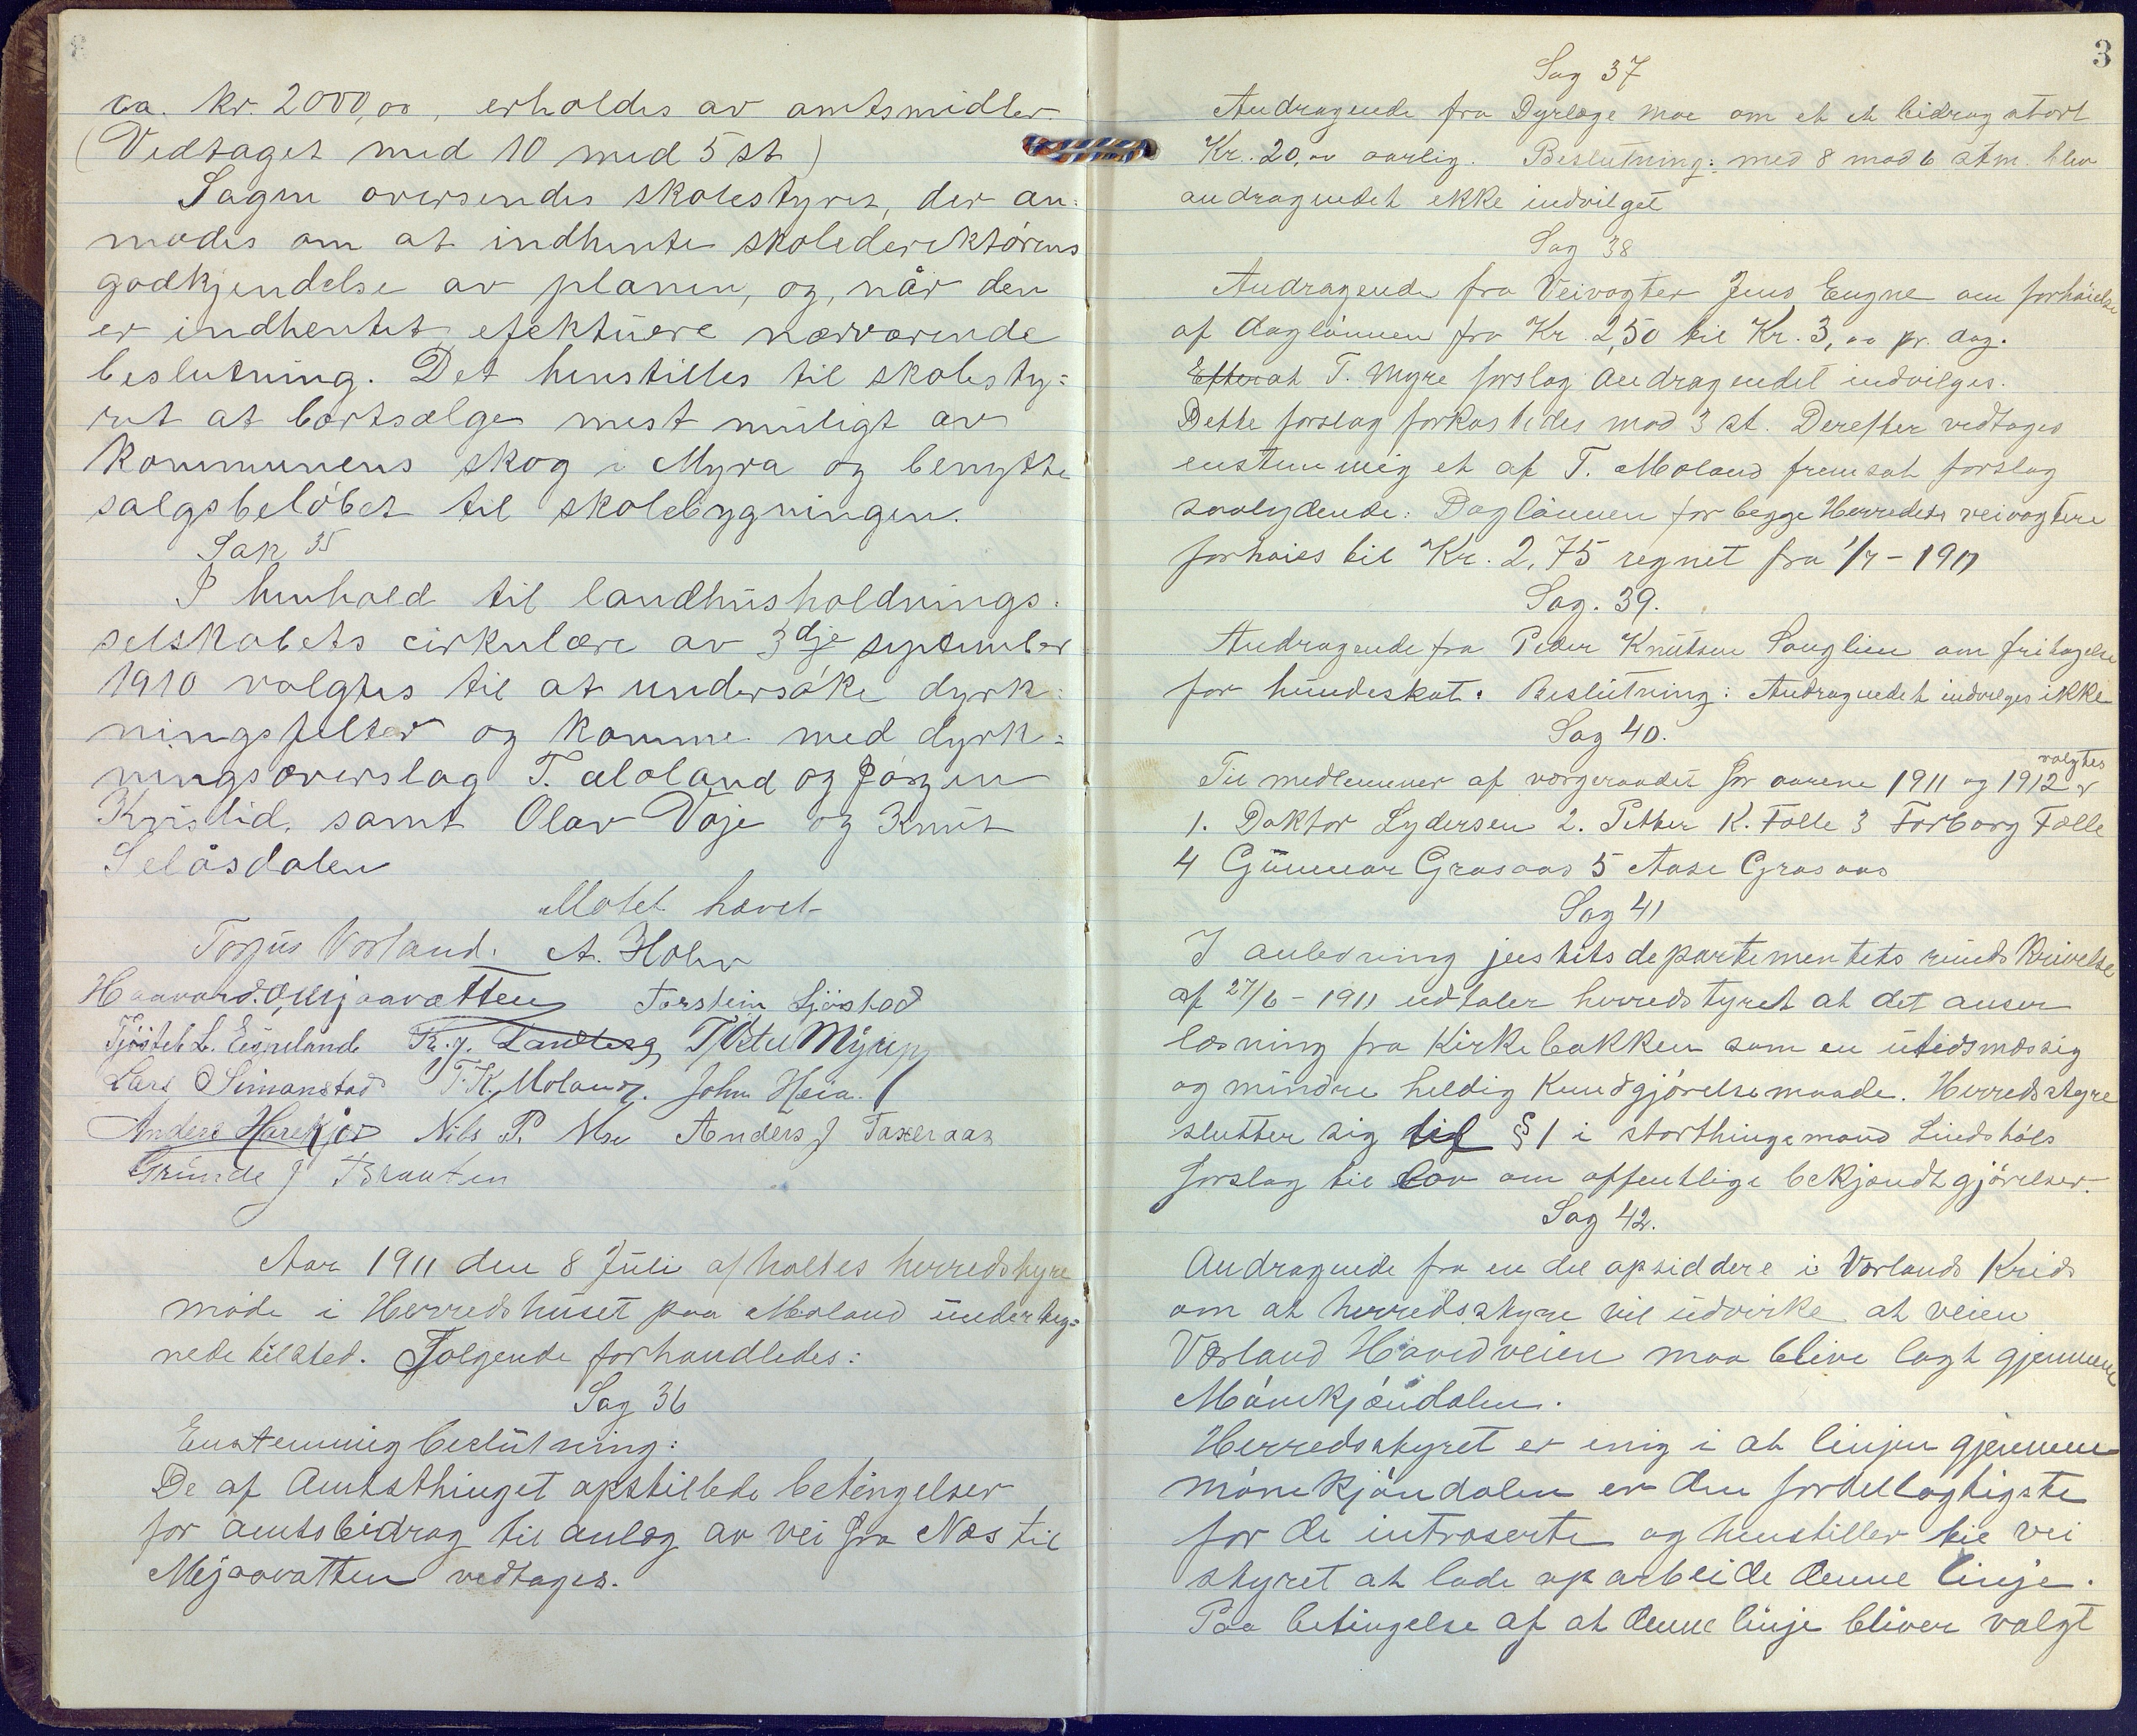 ca. kr. 2000,00, erholdes av amtsmidler
(Vedtaget med 10 mod 5 st)
Sagen oversendes skolestyret, der an-
modes om at indhente skolederektörens
godkjendelse av planen, og, når den
er indhentet, efektuere nærværende
beslutning. Det henstilles til skolesty=
ret at bortsælge mest muligt av
kommunens skog i Myra og benytte
salgsbelöbet til skolebygningen.
Sak 35
I henhold til landhusholdnings-
selskabets cirkulære av 3dje september
1910 valgtes til at undersöke dyrk=
ningsfelter og komme med dyrk=
ningsoverslag T. Moland og Jörgen
Kvistid, samt Olav Vaje og Knut
Selåsdalen
Mötet hævet
Torjus Vorland. A. Holm
Haavard. O. Mjaavatten Torstein Sjöstad
Tjöstel L. Egneland Tr. J. Landberg T. Ostel Myre
Lars Simonstad T. K. Moland. John Heia.
Anders Harekjör Nils P. Moe Anders J Taxeraas
Grunde J Braaten
Aar 1911 den 8 Juli afholtes herredstyre
möde i Herredshuset paa Moland underteg=
nede tilsted. Fölgende forhandledes:
Sag 36
Enstemmig beslutning:
De af Amtsthinget opstillede betingelser
for amtsbidrag til anlæg av vei fra Næs til
Mjaavatten vedtages.
3
Sag 37
Andragende fra Dyrlæge Moe om et et bidrag stort
Kr. 20,00 aarlig. Beslutning: med 8 mod 6 stm. blev
andragendet ekke indvilget
Sag 38
Andragende fra Veivogter Jens Eugne om forhöielse
af daglönnen fra Kr. 2,50 til Kr. 3,00 pr. dag.
Efter at T. Myre forslag Andragendet indvilges.
Dette forslag forkastedes mod 3 st. Derefter vedtages
enstemmig et af T. Moland fremsat forslag
saalydende: Daglönnen for begge Herredets veivogtere
forhöies til Kr. 2,75 regnet fra 1/7 - 1911
Sag. 39.
Andragende fra Peder Knutsen Songlien om fritagelse
for hundeskat. Beslutning: Andragendet indvilges ikke
Sag 40.
Til medlemmer af værgeraadet for aarene 1911 og 1912 valgtes
1. Doktor Lydersen 2. Petter K. Fælle 3 Torborg Fælle
4 Gunnar Grasaas 5 Aase Grasaas
Sag 41
I anledning justitsdepartementets rundskrivelse
af 27/6 - 1911 udtaler herredstyret at det anser
læsning fra Kirkebakken som en utidsmæssig
og mindre heldig kundgjörelsesmaade. Herredstyre
slutter sig til § 1 i storthingsmand Lindshöls
forslag til lov om offentlige bekjendtgjörelser.
Sag 42.
Andragende fra en del opsiddere i Vorlands Kreds
om at herredsstyre vil udvirke at veien
Vorland Hövedveien maa blive lagt gjennem
Mörekjöndalen.
Herredsstyret er enig i at linjen gjennem
mörekjöndalen er den fordellagtigste
for de introserte og henstiller til vei
styret at lade oparbeide denne linje.
Paa betingelse af at denne linje bliver valgt